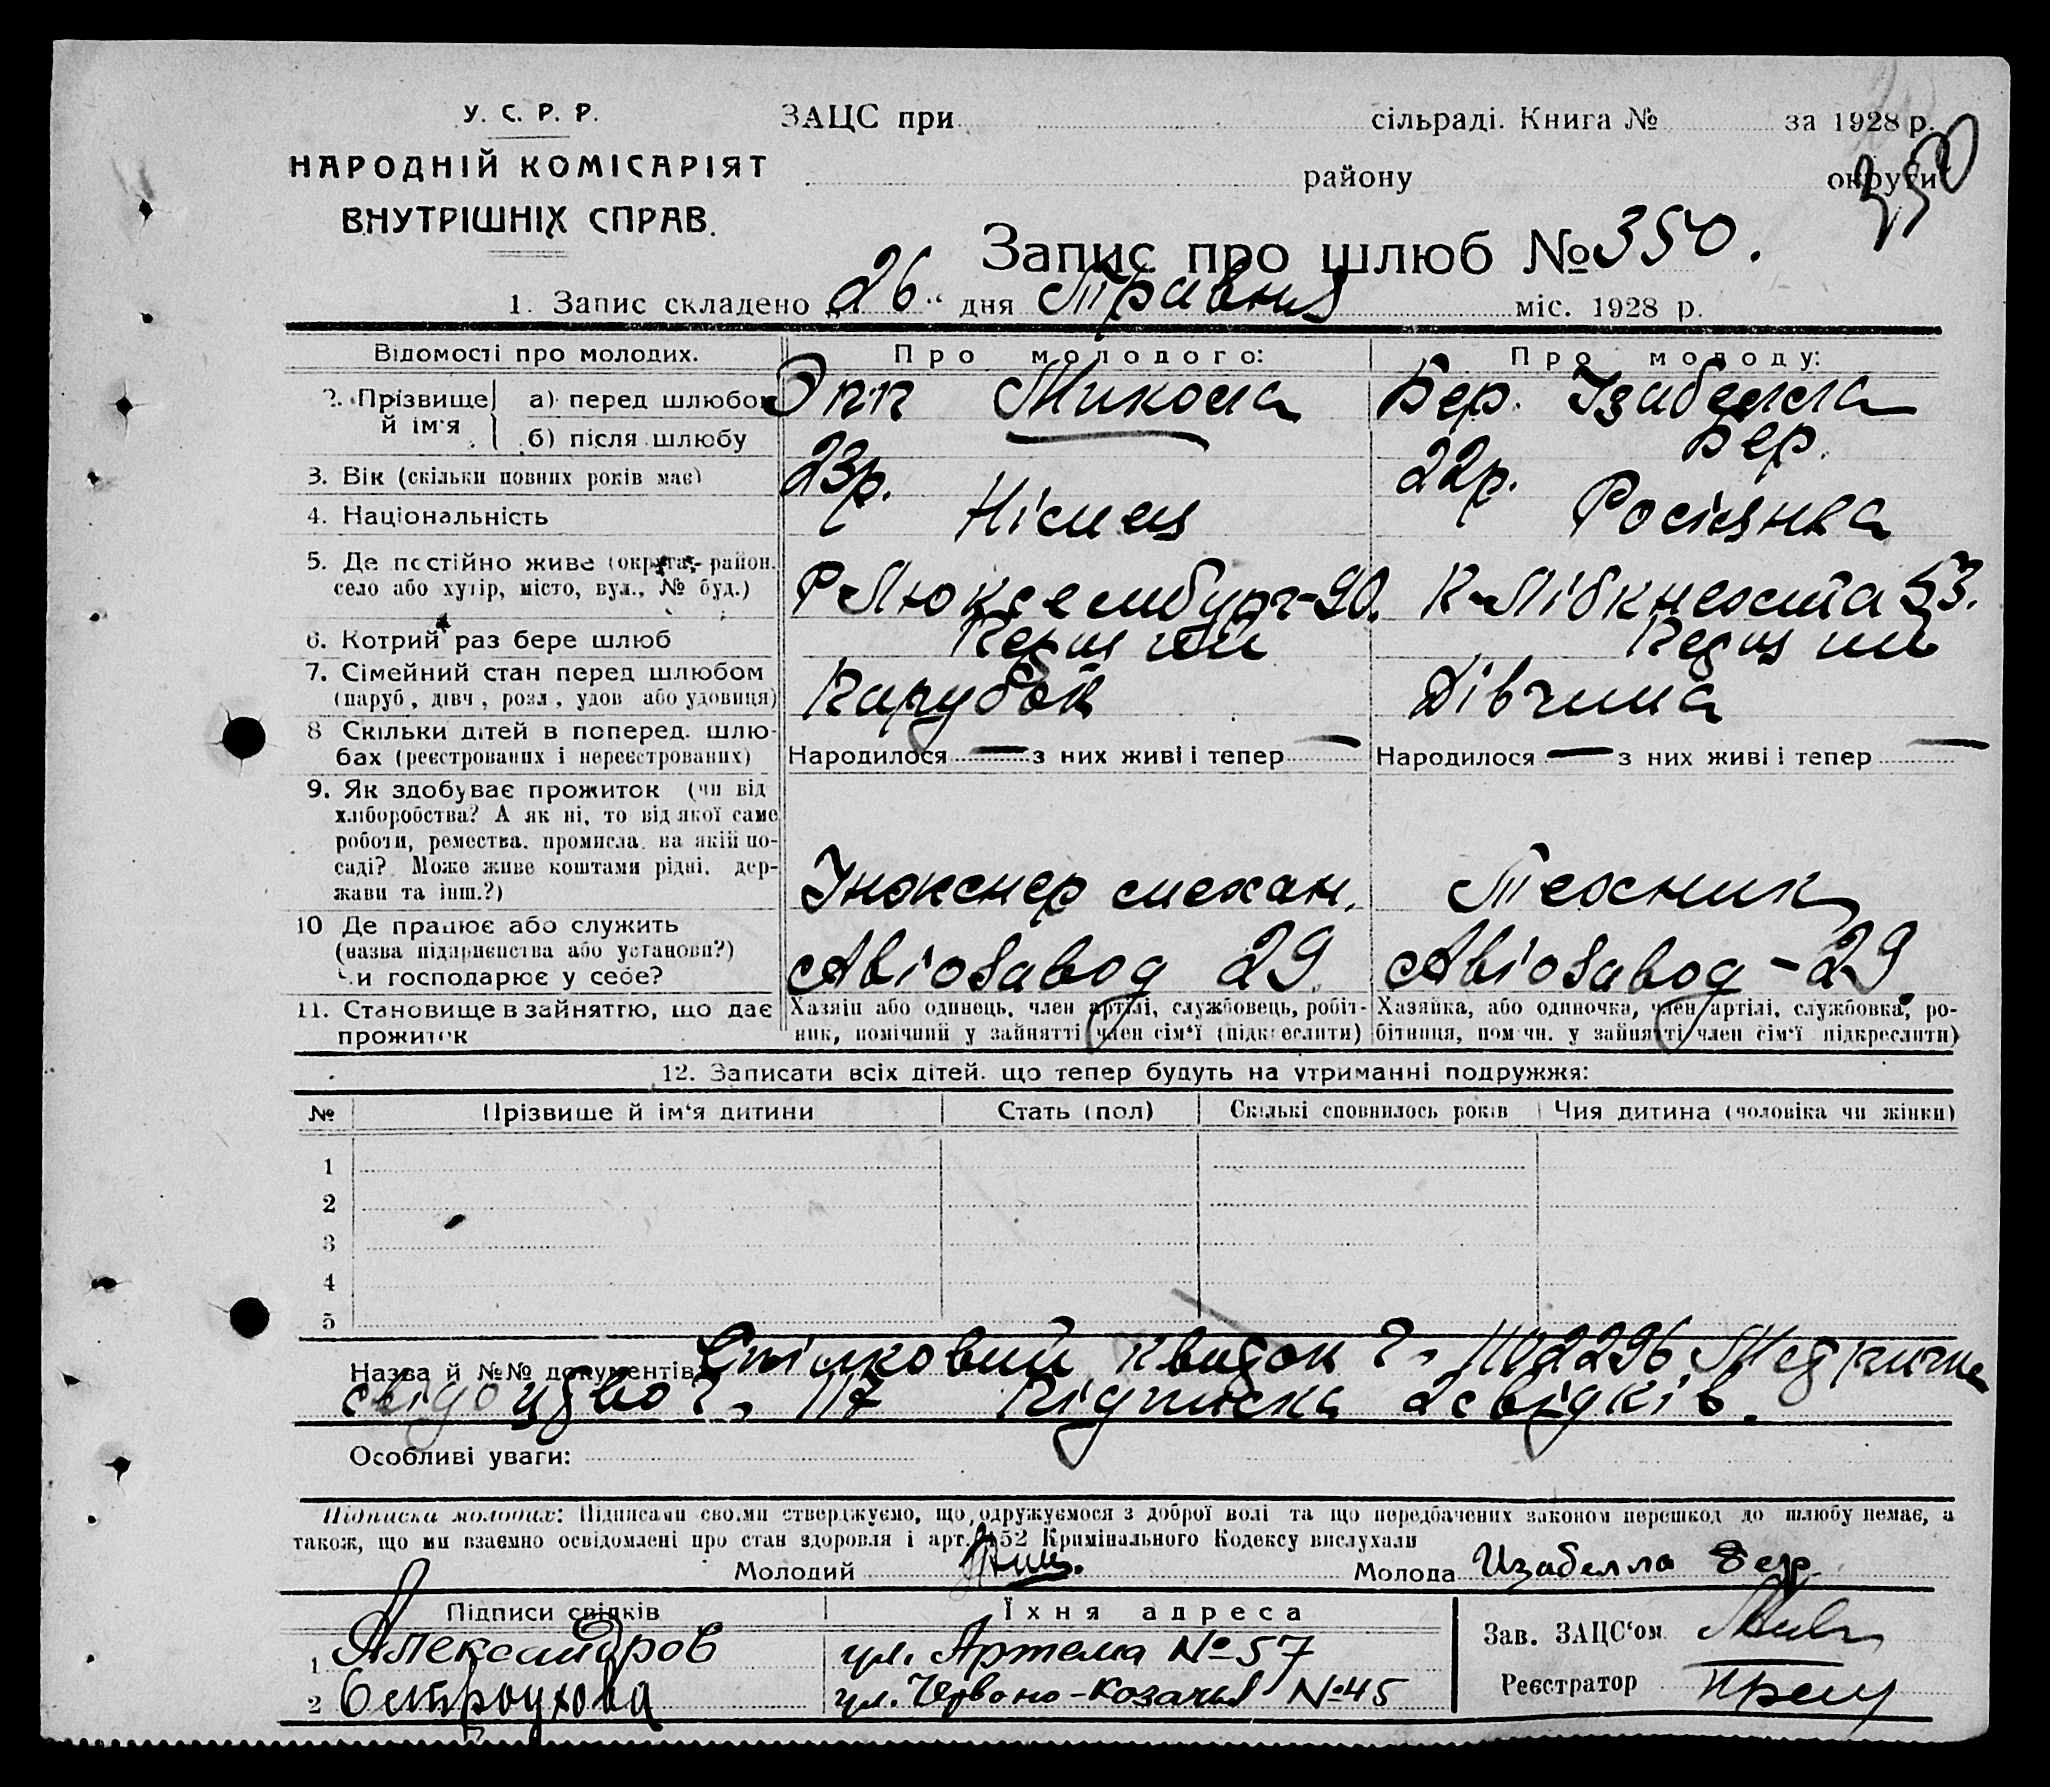 У. С. Р. Р.
НАРОДНІЙ КОМІСАРІЯТ
ВНУТРІШНІХ СПРАВ.
ЗАЦС при сільраді. Книга № за 1928 р.
району округи
350
Запис про шлюб № 350.
1. Запис складено „26“ дня Травня міс. 1928 р.
Відомості про молодих. Про молодого: Про молоду:
2. Прізвище й ім'я а) перед шлюбом Эпп Микола Бер. Ізабелла
б) після шлюбу Бер.
3. Вік (скільки повних років має) 23р. 22р.
4. Національність Німець Росіянка
5. Де постійно живе (округа, район,
село або хутір, місто, вул., № буд.) Р-Люксембург-90. К-Лібкнехта 53.
6. Котрий раз бере шлюб Перший Перший
7. Сімейний стан перед шлюбом
(паруб., дівч., розл., удов. або удовиця) Парубок Дівчина
8 Скільки дітей в поперед. шлю-
бах (реєстрованих і нереєстрованих) Народилося — з них живі і тепер — Народилося — з них живі і тепер —
9. Як здобуває прожиток (чи від
хліборобства? А як ні, то від якої саме
роботи, ремества, промисла, на якій по-
саді? Може живе коштами рідні, дер-
жави та інш.?) Інженер механ. Технік
10 Де працює або служить
(назва підприємства або установи?)
Чи господарює у себе? Авіозавод 29. Авіозавод - 29.
11. Становище в зайняттю, що дає
прожиток
Хазяїн або одинець, член артілі, службовець, робіт-
ник, помічний у зайнятті член сім'ї (підкреслити)
Хазяйка, або одиночка, член артілі, службовка, ро-
бітниця, помічн. у зайнятті член сім'ї підкреслити)
12. Записати всіх дітей, що тепер будуть на утриманні подружжя:
№ Прізвище й ім'я дитини Стать (пол) Скількі сповнилось років Чия дитина (чоловіка чи жінки)
1
2
3
4
5
Назва й №№ документів Спілковий квиток ч. 1102296 Метричне
свідоцтво ч. 117 Підписка 2 свідків.
Особливі уваги:
Підписки молодих: Підписами своїми стверджуємо, що одружуємося з доброї волі та що передбачених законом перешкод до шлюбу немає, а
також, що ми взаємно освідомлені про стан здоровля і арт. 152 Кримінального Кодексу вислухали
Молодий Молода Изабелла Бер.
Підписи свідків Їхня адреса
1 Александров ул. Артема № 57
2 Остроухова ул. Червоно-Козачья № 45
Зав. ЗАЦС'ом
Реєстратор